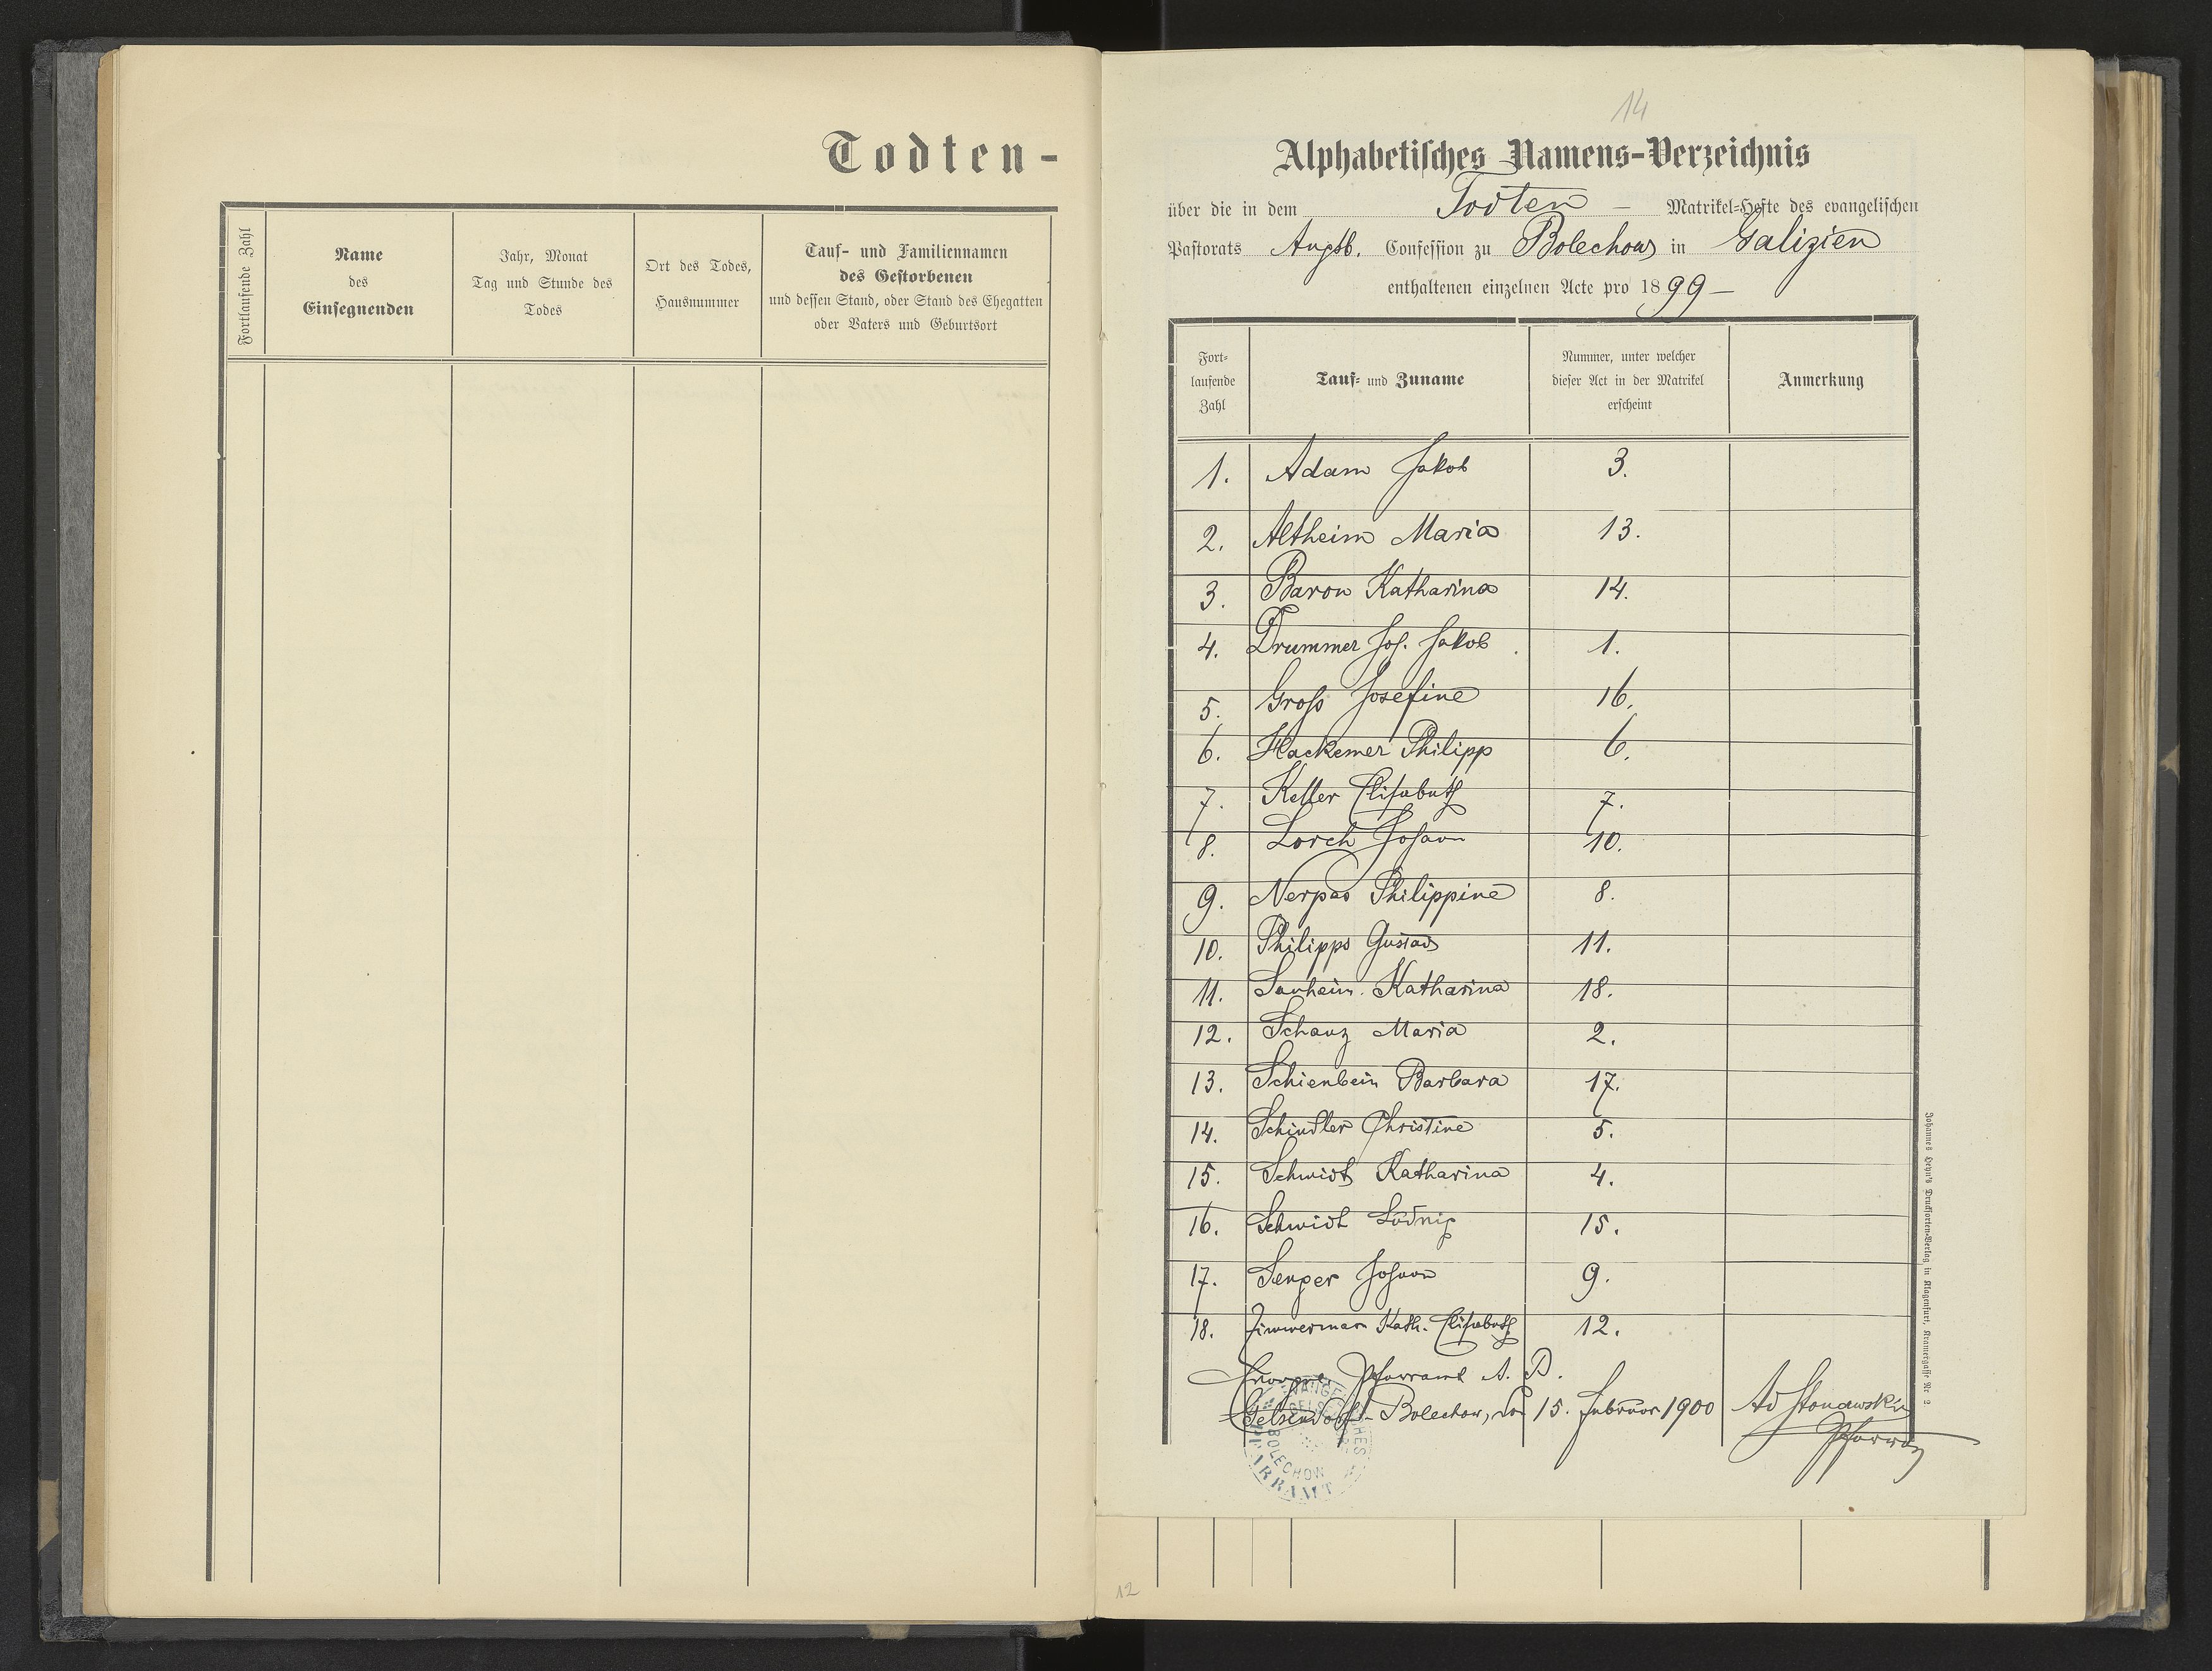 Todten-
Fortlaufende Zahl
Name
des
Einsegnenden
Jahr, Monat
Tag und Stunde des
Todes
Ort des Todes,
Hausnummer
Tauf- und Familiennamen
des Gestorbenen
und dessen Stand, oder Stand des Ehegatten
oder Vaters und Geburtsort
14
Alphabetisches Namens-Verzeichnis
über die in dem Todten - Matrikel-Hefte des evangelischen
Pastorats Augsb. Confession zu Bolechow in Galizien
enthaltenen einzelnen Acte pro 1899 -
Fort-
laufende
Zahl
Tauf- und Zuname
Nummer, unter welcher
dieser Act in der Matrikel
erscheint
Anmerkung
1. Adam Jakob 3.
2. Altheim Maria 13.
3. Baron Katharina 14.
4. Drummer Joh. Jakob 1.
5. Gross Josefine 16.
6. Hackemer Philipp 6.
7. Keller Elisabeth 7.
8. Lorch Johann 10.
9. Nerpas Philippine 8.
10. Philipps Gustav 11.
11. Sauheim Katharina 18.
12. Schanz Maria 2.
13. Schienbein Barbara 17.
14. Schindler Christine 5.
15. Schmidt Katharina 4.
16. Schmidt Ludwig 15.
17. Senger Johann 9.
18. Zimmerman Kath. Elisabeth 12.
Evangel. Pfarramt A. B.
Gelsendorf-Bolechow, den 15. Februar 1900 Ad Stonawski
Pfarrer
EVANGELISCHES
PFARRAMT
GELSENDORF
BOLECHOW
Johannes Heyn's Drucksorten-Verlag in Klagenfurt, Kramergasse Nr 2.
12